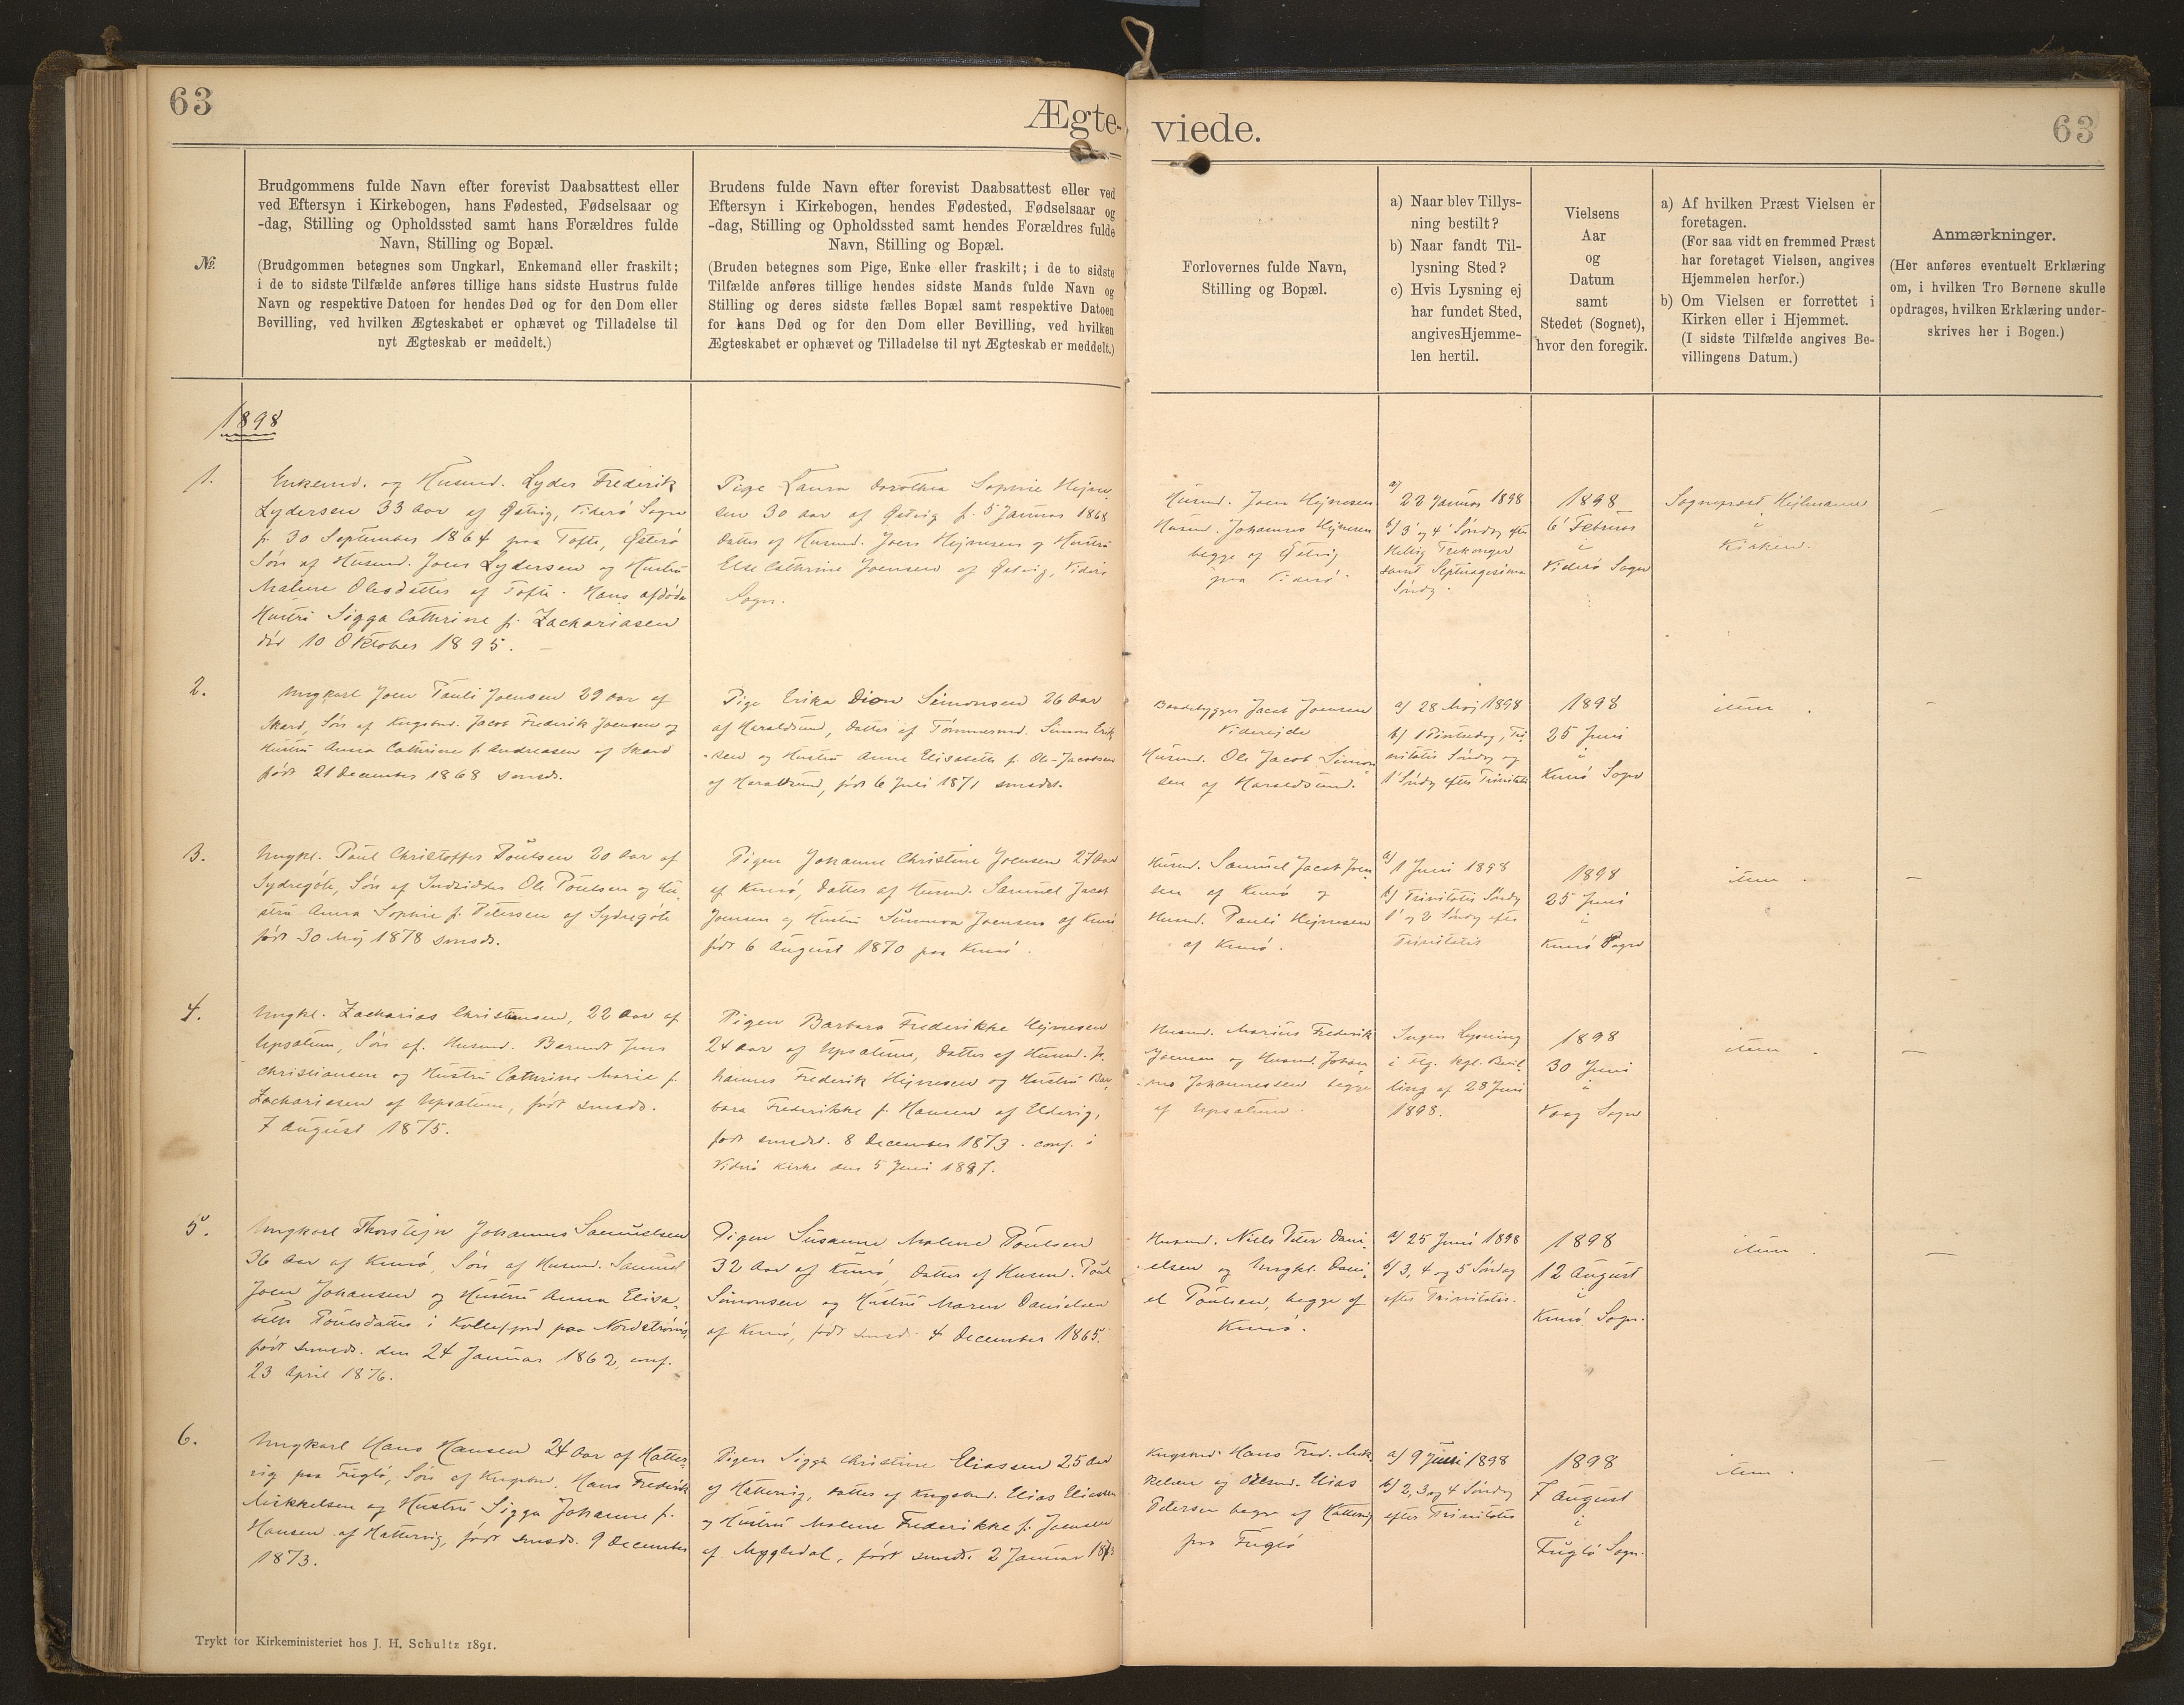 63
Ægte-
viede.
63
№
Brudgommens fulde Navn efter forevist Daabsattest eller
ved Eftersyn i Kirkebogen, hans Fødested, Fødselsaar og
-dag, Stilling og Opholdssted samt hans Forældres fulde
Navn, Stilling og Bopæl.
(Brudgommen betegnes som Ungkarl, Enkemand eller fraskilt;
i de to sidste Tilfælde anføres tillige hans sidste Hustrus fulde
Navn og respektive Datoen for hendes Død og for den Dom eller
Bevilling, ved hvilken Ægteskabet er ophævet og Tilladelse til
nyt Ægteskab er meddelt.)
Brudens fulde Navn efter forevist Daabsattest eller ved
Eftersyn i Kirkebogen, hendes Fødested, Fødselsaar og
-dag, Stilling og Opholdssted samt hendes Forældres fulde
Navn, Stilling og Bopæl.
(Bruden betegnes som Pige, Enke eller fraskilt; i de to sidste
Tilfælde anføres tillige hendes sidste Mands fulde Navn og
Stilling og deres sidste fælles Bopæl samt respektive Datoen
for hans Død og for den Dom eller Bevilling, ved hvilken
Ægteskabet er ophævet og Tilladelse til nyt Ægteskab er meddelt.)
Forlovernes fulde Navn,
Stilling og Bopæl.
a) Naar blev Tillys-
ning bestilt?
b) Naar fandt Til-
lysning Sted?
c) Hvis Lysning ej
har fundet Sted,
angivesHjemme-
len hertil.
Vielsens
Aar
og
Datum
samt
Stedet (Sognet),
hvor den foregik.
a) Af hvilken Præst Vielsen er
foretagen.
(For saa vidt en fremmed Præst
har foretaget Vielsen, angives
Hjemmelen herfor.)
b) Om Vielsen er forrettet i
Kirken eller i Hjemmet.
(I sidste Tilfælde angives Be-
villingens Datum.)
Anmærkninger.
(Her anføres eventuelt Erklæring
om, i hvilken Tro Børnene skulle
opdrages, hvilken Erklæring under-
skrives her i Bogen.)
1898
1.
Enkemd. og Husmd. Lyder Frederik
Lydersen 33 Aar af Østvig, Viderö Sogn
f. 30 September 1864 paa Tofte, Østerö
Sön af Husmd. Joen Lydersen og Hustru
Malene Olesdatter af Tofte. Hans afdöde
Hustru Sigga Cathrine f. Zachariasen
död 10 Oktober 1895. —
Pige Laura Dorothea Sophie Hejne-
sen 30 Aar af Østvig f. 5 Januar 1868
Datter af Husmd. Joen Hejnesen og Hustru
Else Cathrine Joensen af Østvig, Viderö
Sogn.
Husmd. Joen Hejnesen
Husmd. Johannes Hejnesen
begge af Østvig
paa Viderö.
a) 22 Januar 1898
b) 3' og 4' Söndag efter
Hellig Trekonger
samt Septuagesima
Söndag.
1898
6' Februar
i
Viderö Sogn
Sognepræst Hejlmann
i
Kirken.
—
2.
Ungkarl Joen Pauli Joensen 29 Aar af
Skard, Sön af Kngsbnd. Jacob Frederik Joensen og
Hustru Anna Cathrine f. Andreasen af Skard
född 21 December 1868 smsds.
Pige Erika Dion Simonsen 26 Aar
af Haraldsund, Datter af Tömmermd. Simon Erik
-sen og Hustru Anne Elisabeth f. Ole-Jacobsen
af Haraldsund, född 6 Juli 1871 smsds.
Bondebygger Jacob Joensen
Viderejde
Husmd. Ole Jacob Simon-
sen af Haraldsund.
a) 28 Maj 1898
b) 1 Pintsedag, Tri-
nitatis Söndag og
1' Söndag efter Trinitatis
1898
25 Juni
i
Kunö Sogn
item .
—
3.
Ungkl. Poul Christoffer Poulsen 20 Aar af
Sydregöte, Sön af Indsidder Ole Poulsen og Hu-
stru Anna Sophie f. Petersen af Sydregöte
född 30 Maj 1878 smsds.
Pigen Johanne Christine Joensen 27 Aar
af Kunö, Datter af Husmd. Samuel Jacob
Joensen og Hustru Sunneva Joensen af Kunö
född 6 August 1870 paa Kunö.
Husmd. Samuel Jacob Joen-
sen af Kunö og
Husmd. Pauli Hejnesen
af Kunö.
a) 1 Juni 1898
b) Trinitatis Söndag
1' og 2 Söndag efter
Trinitatis
1898
25 Juni
i
Kunö Sogn
item .
—
4.
Ungkl. Zacharias Christensen, 22 Aar af
Upsalum, Sön af Husmd. Berendt Jens
Christiansen og Hustru Cathrine Marie f.
Zachariasen af Upsalum, född smsds.
7 August 1875.
Pigen Barbara Frederikke Hejnesen
24 Aar af Upsalum, Datter af Husmd. Jo-
hannes Frederik Hejnesen og Hustru Bar-
bara Frederikke f. Hansen af Eldevig,
född smsds. 8 December 1873. conf. i
Viderö Kirke den 5 Juni 1887.
Husmd. Marius Frederik
Joensen og Husmd. Johan-
nes Johannessen begge
af Upsalum.
Ingen Lysning
i Flg. Kgl. Bevil-
ling af 28 Juni
1898.
1898
30 Juni
i
Vaag Sogn
item .
—
5.
Ungkarl Thorstejn Johannes Samuelsen
36 Aar af Kunö, Sön af Husmd. Samuel
Joen Johansen og Hustru Anna Elisa-
beth Poulsdatter i Kollefjord paa Nordströmö,
född smsds. den 24 Januar 1862, conf.
23 April 1876.
Pigen Susanne Malene Poulsen
32 Aar af Kunö, Datter af Husmd. Poul
Simonsen og Hustru Maren Danielsen
af Kunö, född smsds. 4 December 1865.
Husmd. Niels Peter Dani-
elsen og Ungkl. Dani-
el Poulsen, begge af
Kunö.
a) 25 Juni 1898
b) 3, 4 og 5 Söndag
efter Trinitatis.
1898
12 August
i
Kunö Sogn.
item .
—
6.
Ungkarl Hans Hansen 24 Aar af Hatter-
vig paa Fuglö, Sön af Kngsbnd. Hans Frederik
Mikkelsen og Hustru Sigga Johanne f.
Hansen af Hattervig, född smsds. 9 December
1873.
Pigen Sigga Christine Eliassen 25 Aar
af Hattervig, Datter af Kngsbnd. Elias Eliassen
og Hustru Malene Frederikke f. Joensen
af Mygledal, född smsds. 2 Januar 1873
Kngsbnd. Hans Fred. Mik-
kelsen og Odelsmd. Elias
Petersen begge af Hattervig
paa Fuglö
a) 9 Juni 1898
b) 2, 3 og 4 Söndag
efter Trinitatis
1898
7 August
i
Fuglö Sogn.
item .
—
Trykt for Kirkeministeriet hos J. H. Schultz 1891.